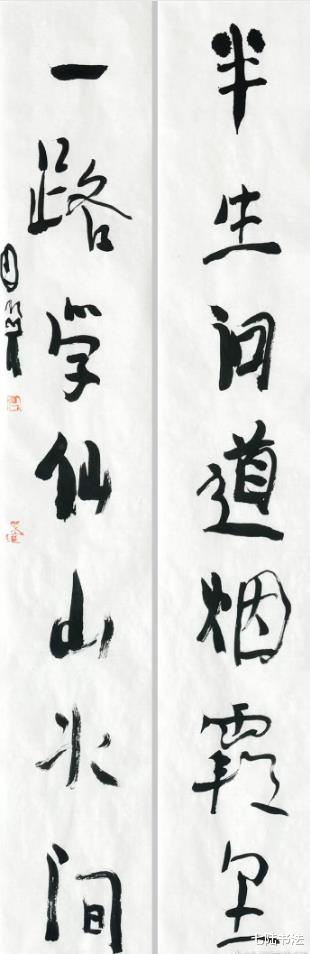 半生问道烟霞里
一路学仙山水间
七陆书法